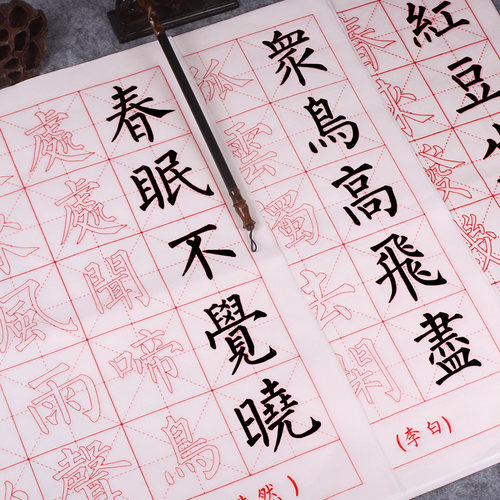 紅豆生
春來發幾
衆鳥高飛盡
孤雲獨去閑
(李白)
春眠不覺曉
處處聞啼鳥
來風雨聲
然)